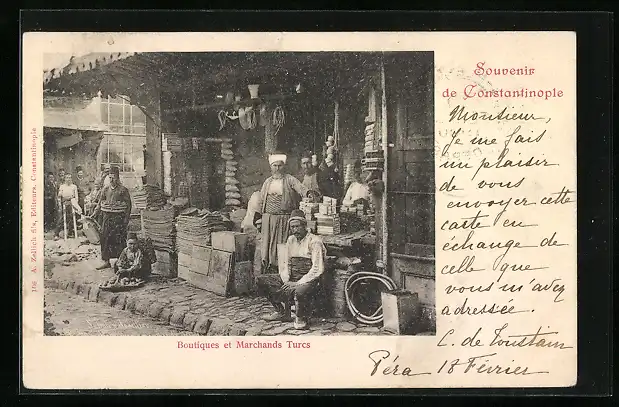 Souvenir
de Constantinople
Monsieur,
Je me fais
un plaisir
de vous
envoyer cette
carte en
échange de
celle que
vous m'avez
adressée.
C. de Toustain
Péra 18 Février
Boutiques et Marchands Turcs
A. Zellich fils, Editeurs, Constantinople